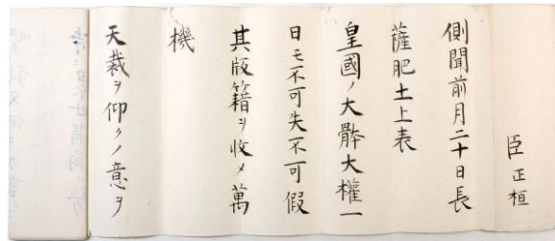 臣 正桓
側聞前月二十日長
薩肥土上表
皇國ノ大體大權一
日モ不可失不可假
其版籍ヲ收メ萬
機
天裁ヲ仰クノ意ヲ